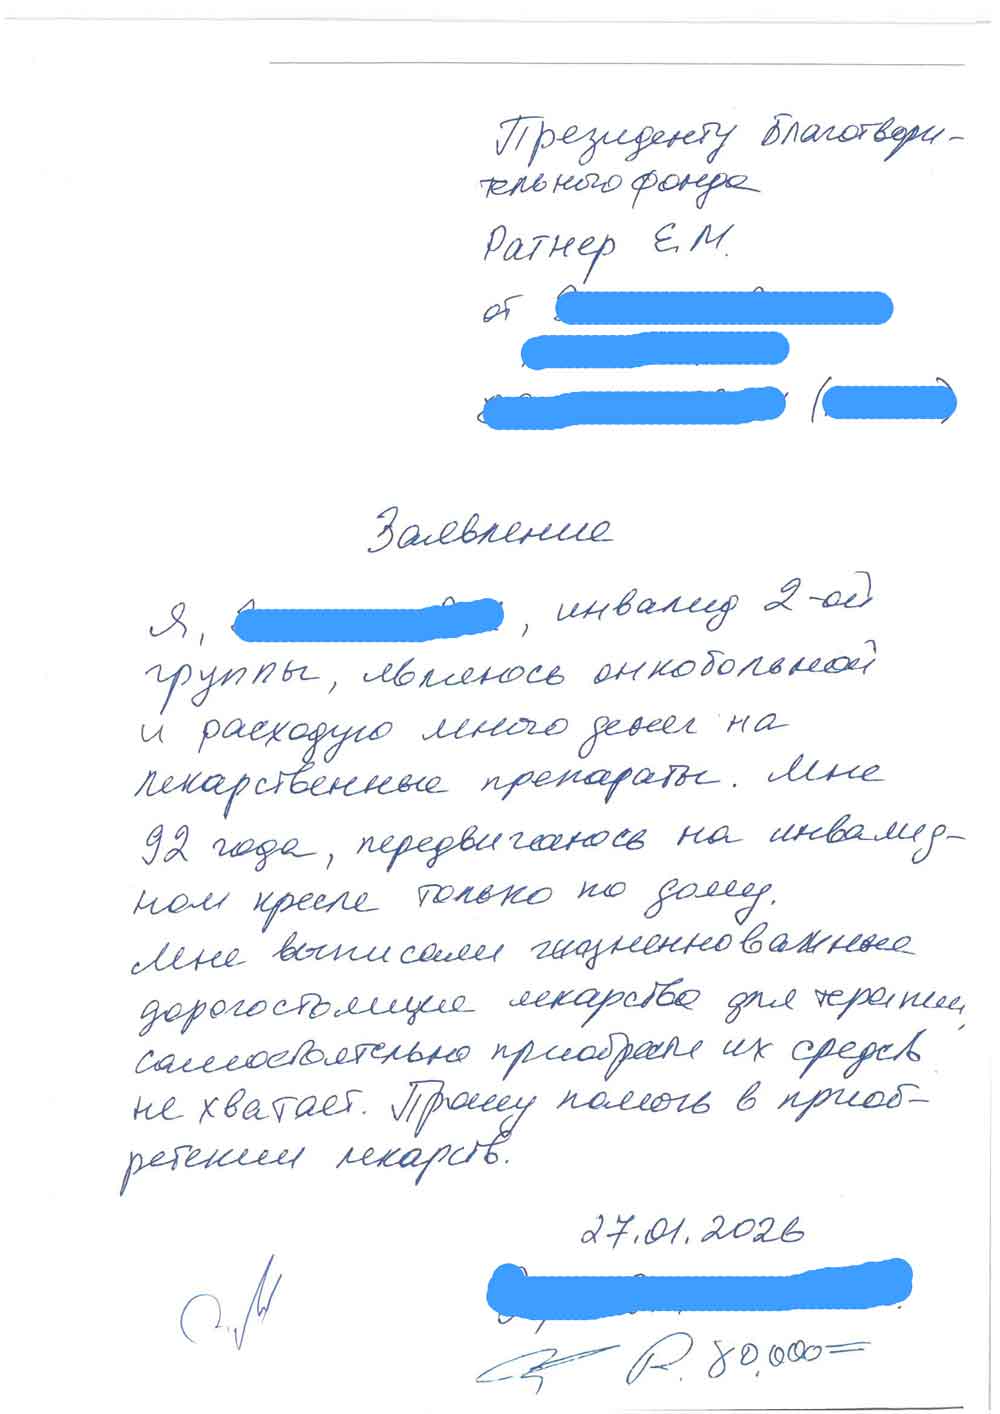 Президенту Благотвори-
тельного фонда
Ратнер Е.М.
от
(
)
Заявление
Я, , инвалид 2-ой
группы, являюсь онкобольной
и расходую много денег на
лекарственные препараты. Мне
92 года, передвигаюсь на инвалид-
ном кресле только по дому.
Мне выписали жизненноважные
дорогостоящие лекарства для терапии,
самостоятельно приобрести их средств
не хватает. Прошу помочь в приоб-
ретении лекарств.
27.01.2026
Р. 80.000=